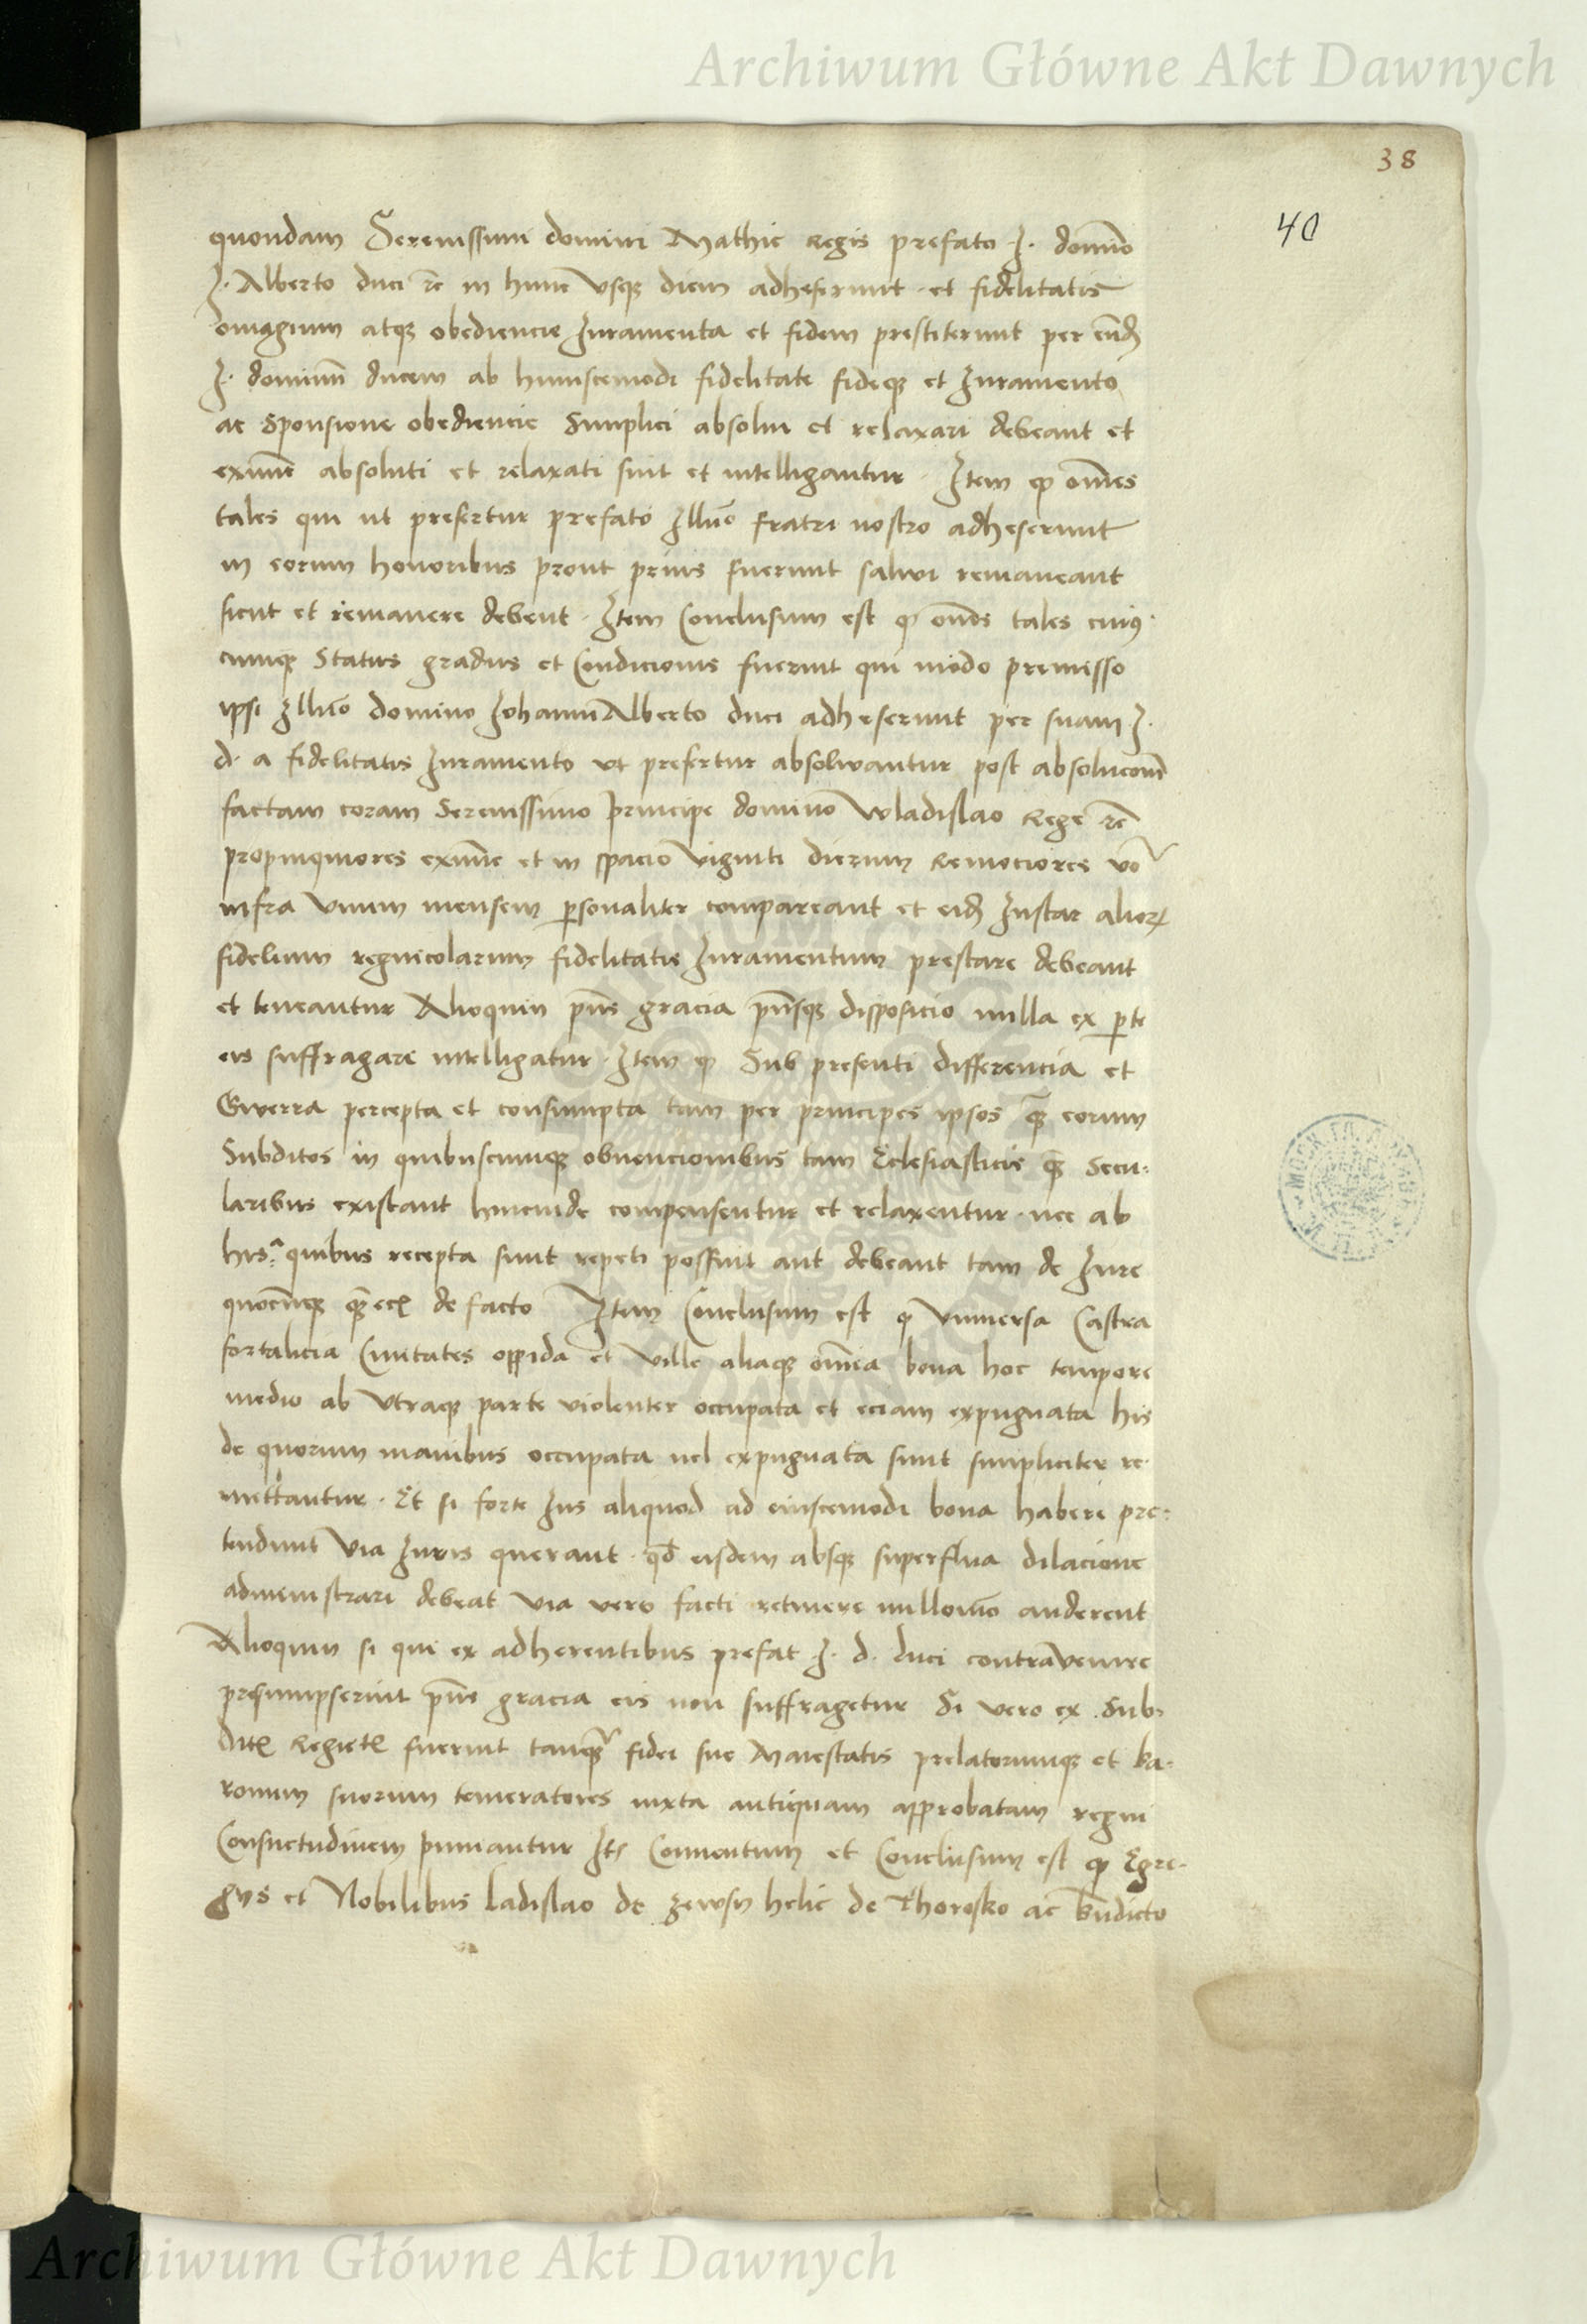 Archiwum Główne Akt Dawnych
38
40
quondam Serenissimi domini Mathie Regis prefato I. domino
I. Alberto duci rc in hunc usque diem adheserunt et fidelitatis
omagium atque obediencie Iuramenta et fidem prestiterunt per eund
I. dominum ducem ab huiuscemodi fidelitate fideque et Iuramento
ac Sponsione obediencie Simplici absolui et relaxari debeant et
exnunc absoluti et relaxati sint et intelligantur. Item quod omnes
tales qui ut prefertur prefato Illmo fratri nostro adheserunt
in eorum honoribus prout prius fuerunt salui remaneant
sicut et remanere debent. Item Conclusum est quod omnes tales cuius
cumque Status gradus et Condicionis fuerint qui modo premisso
ipsi Illmo domino Iohanni Alberto duci adheserunt per suam I.
d. a fidelitatis Iuramento ut prefertur absoluantur post absolucionem
factam coram Serenissimo principe domino Wladislao Rege rc
propinquiores exnunc et in spacio Viginti dierum Remociores vero
infra Unum mensem personaliter compareant et eid Instar aliorum
fidelium regnicolarum fidelitatis Iuramentum prestare debeant
et teneantur Alioquin pns gracia pnsque disposicio nulla ex parte
eis suffragare intelligatur. Item quod Sub presenti differencia et
Gwerra percepta et consumpta tam per principes ipsos quam eorum
Subditos in quibuscumque obuencionibus tam Eclesiasticis quam Secu-
laribus existant hincinde compensentur et relaxentur. nec ab
his a quibus recepta sunt repeti possint aut debeant tam de Iure
quocumque quam eciam de facto Item Conclusum est quod Vniuersa Castra
fortalicia Ciuitates oppida et Ville aliaque omnia bona hoc tempore
medio ab Vtraque parte violenter occupata et eciam expugnata his
de quorum manibus occupata uel expugnata sunt simpliciter re-
mittantur. Et si forte Ius aliquod ad eiuscemodi bona habere pre-
tendunt Via Iuris querant. quod eisdem absque superflua dilacione
administrari debeat Via vero facti retinere nullomodo auderent
Alioquin si qui ex adherentibus prefat I. d. duci contrauenire
presumpserint pns gracia eis non suffragetur Si vero ex Sub-
ditis Regiis fuerint tanquam fidei sue Maiestatis prelatorumque et ba-
ronum suorum temeratores iuxta antiquam approbatam regni
Consuetudinem puniantur Item Conuentum et Conclusum est quod Egre-
gys et Nobilibus Ladislao de helic de Thorosko ac bndicto
Archiwum Główne Akt Dawnych